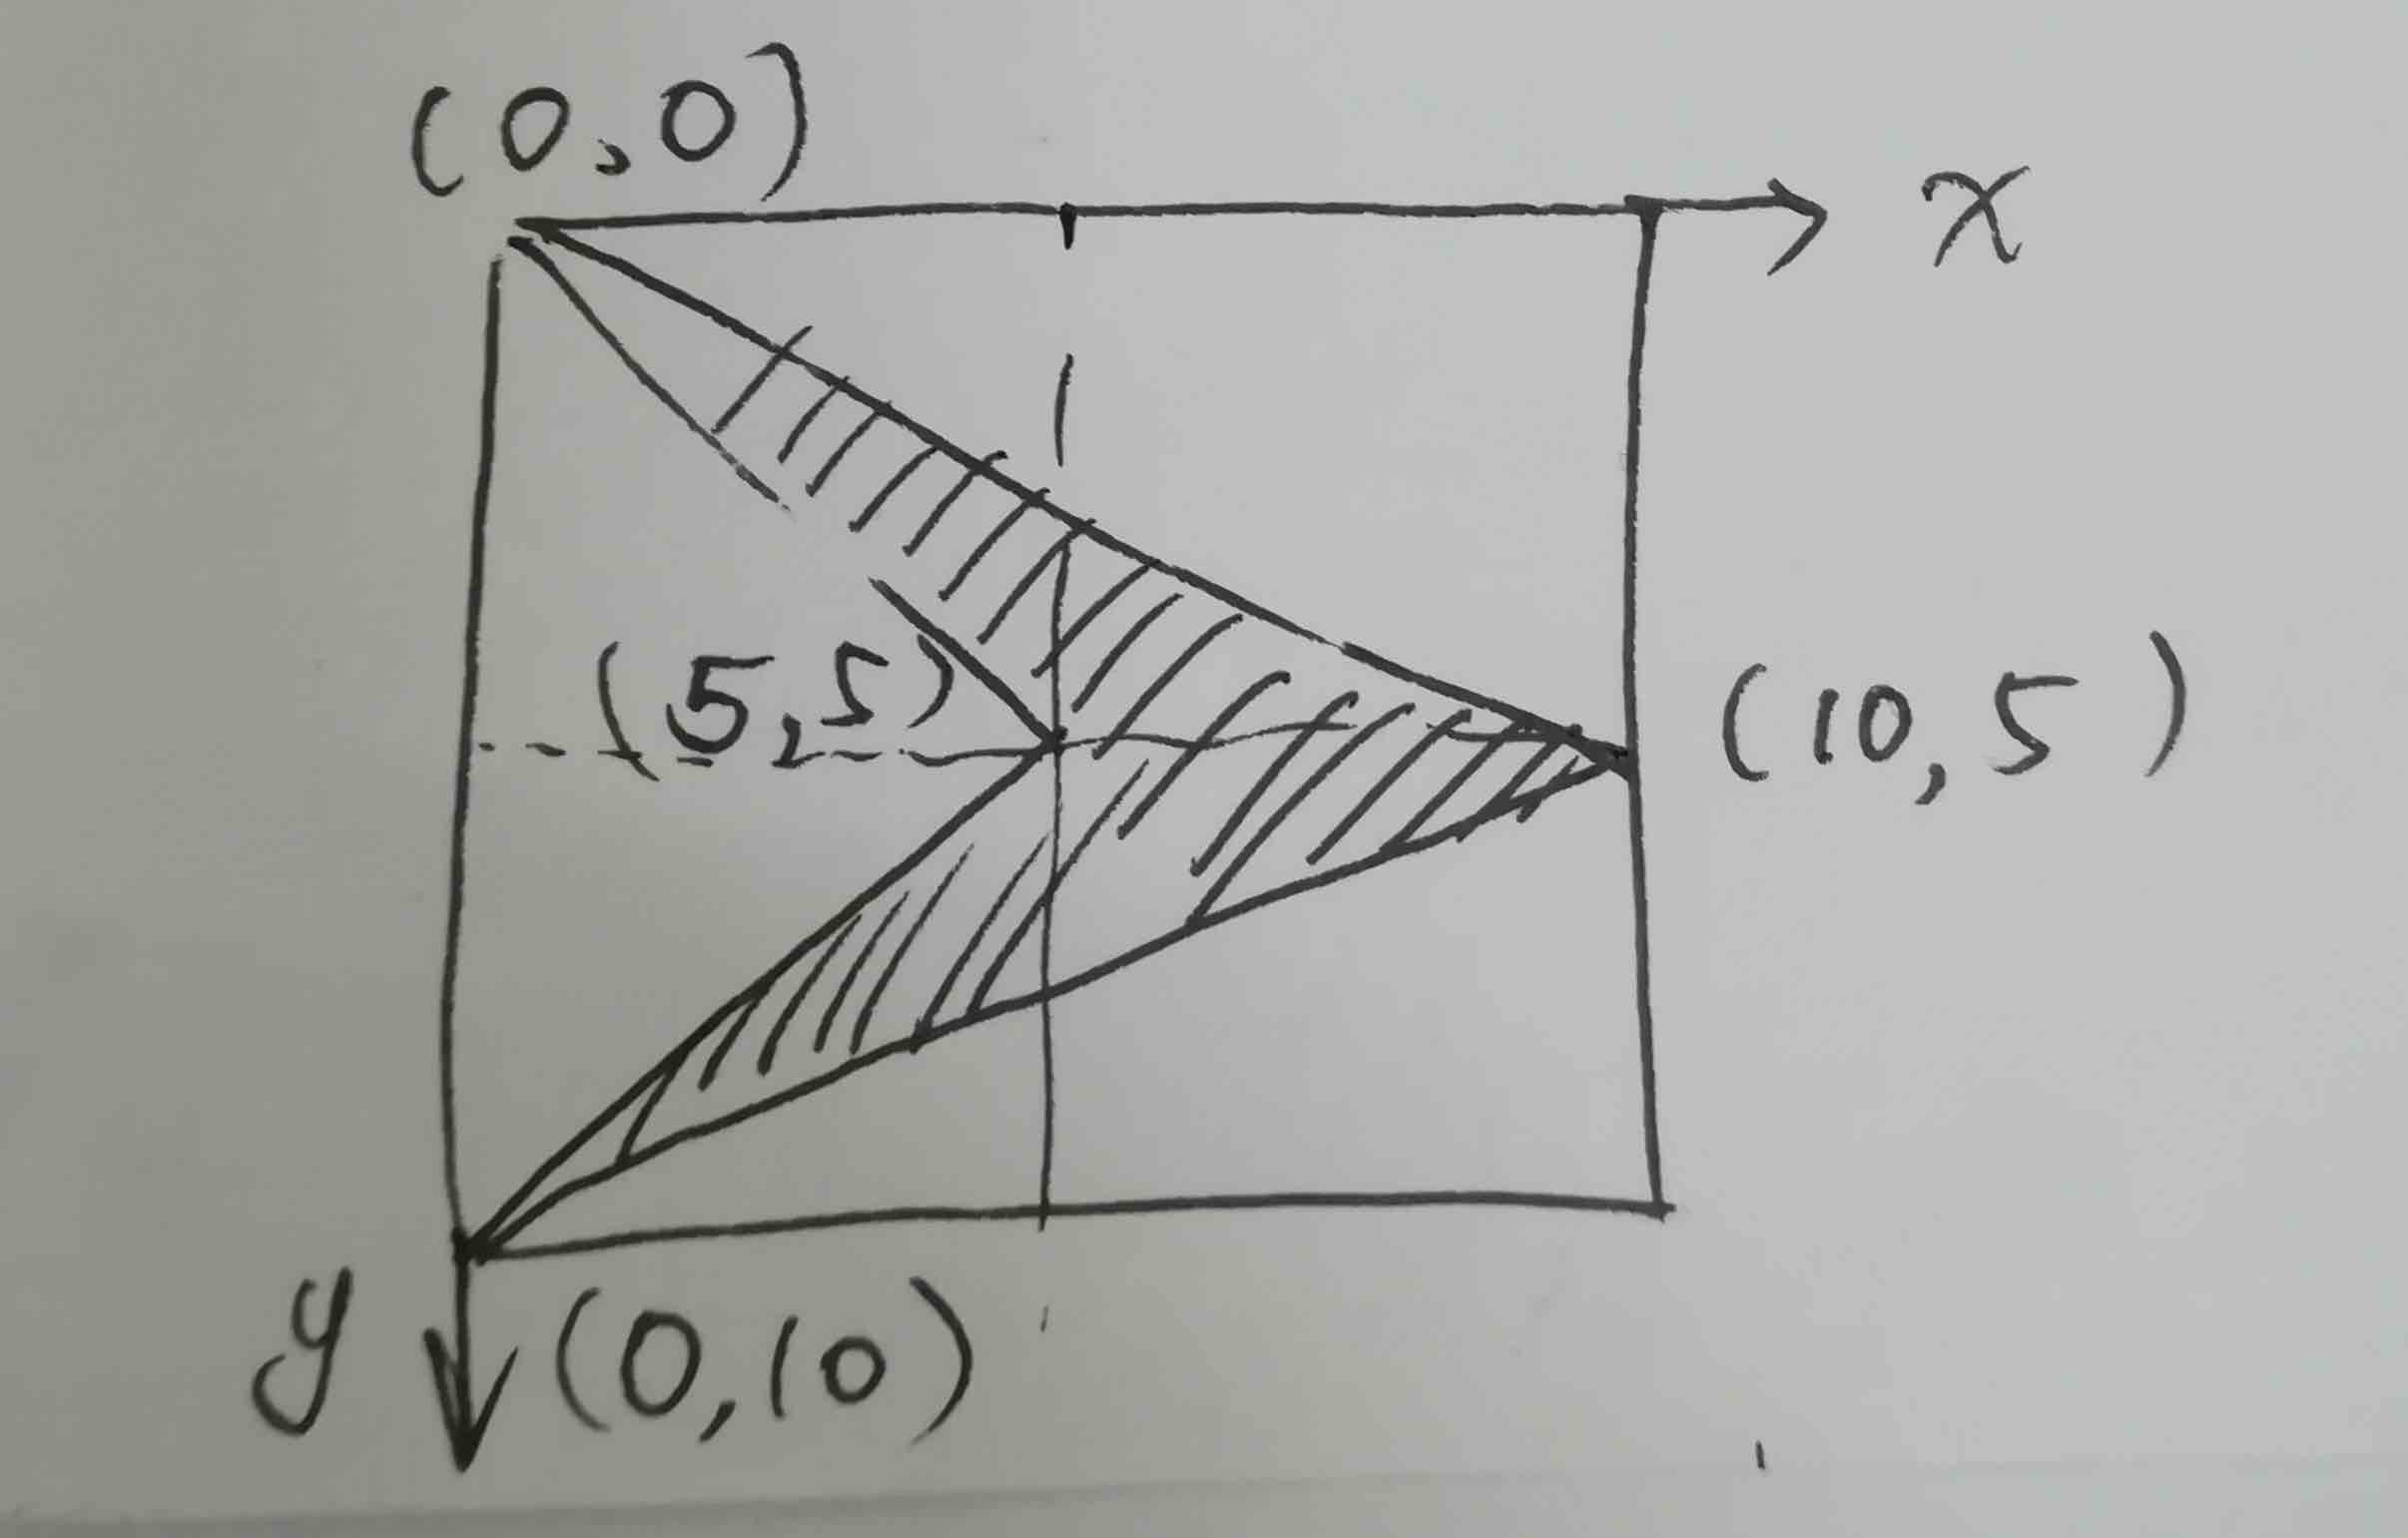 (0,0)
x
(5,5)
(10,5)
y
(0,10)